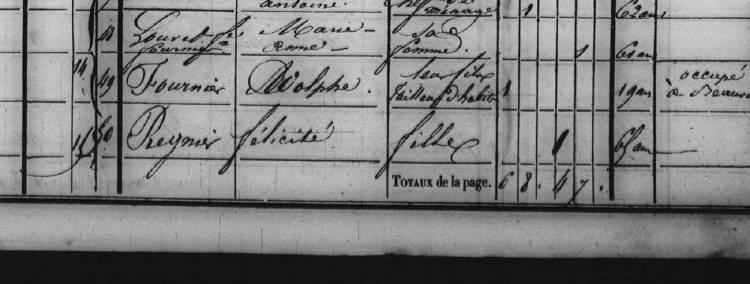 antoine. chef de
ménage 1 62 ans
48 Louvet fe Marie- Sa
fournier anne- femme. 1 61 an
14 49 Fournier Adolphe. leur fils occupé
tailleur d'habits 1 19 ans à
15 50 Reynier félicité fille 1 ans
TOTAUX de la page. 6 8. 4 7.